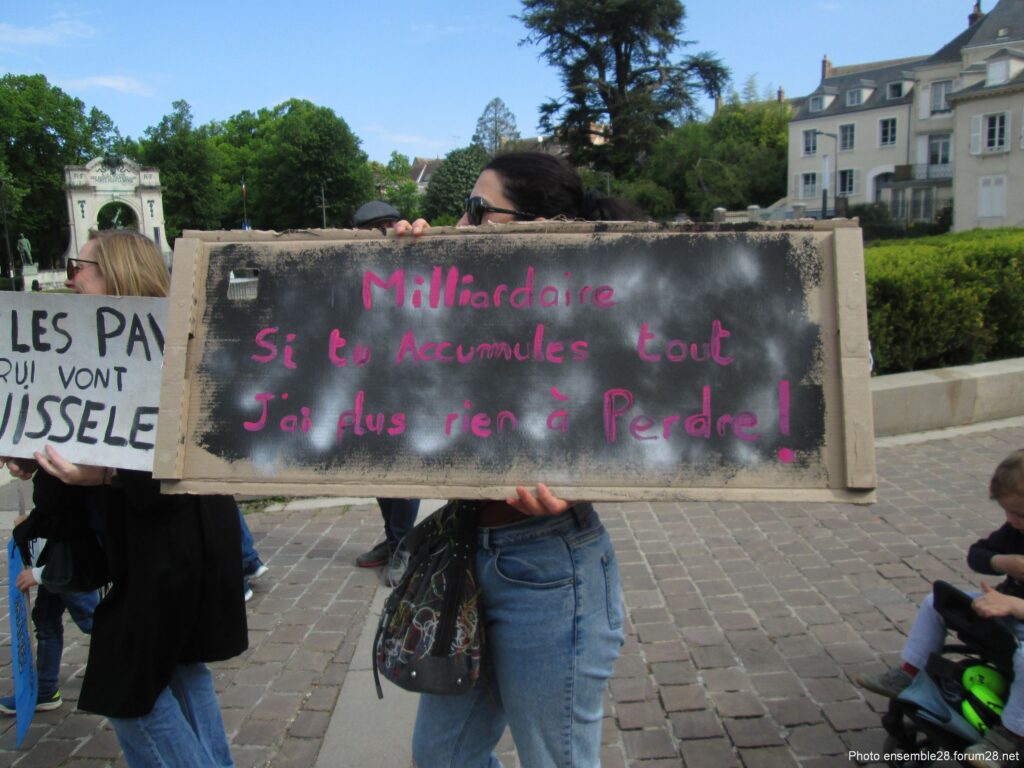 Milliardaire
Si tu Accumules tout
J'ai plus rien à Perdre !
LES PAV
QUI VONT
UISSELE
Photo ensemble28.forum28.net